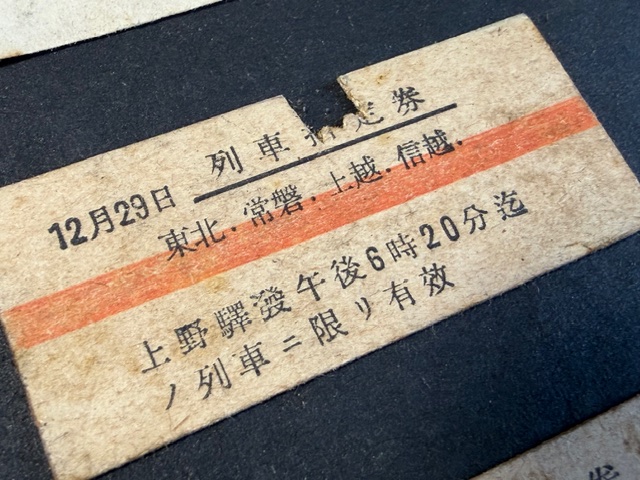 列車指定券
12月29日
東北.常磐.上越.信越.
上野驛發午後6時20分迄
ノ列車ニ限リ有效